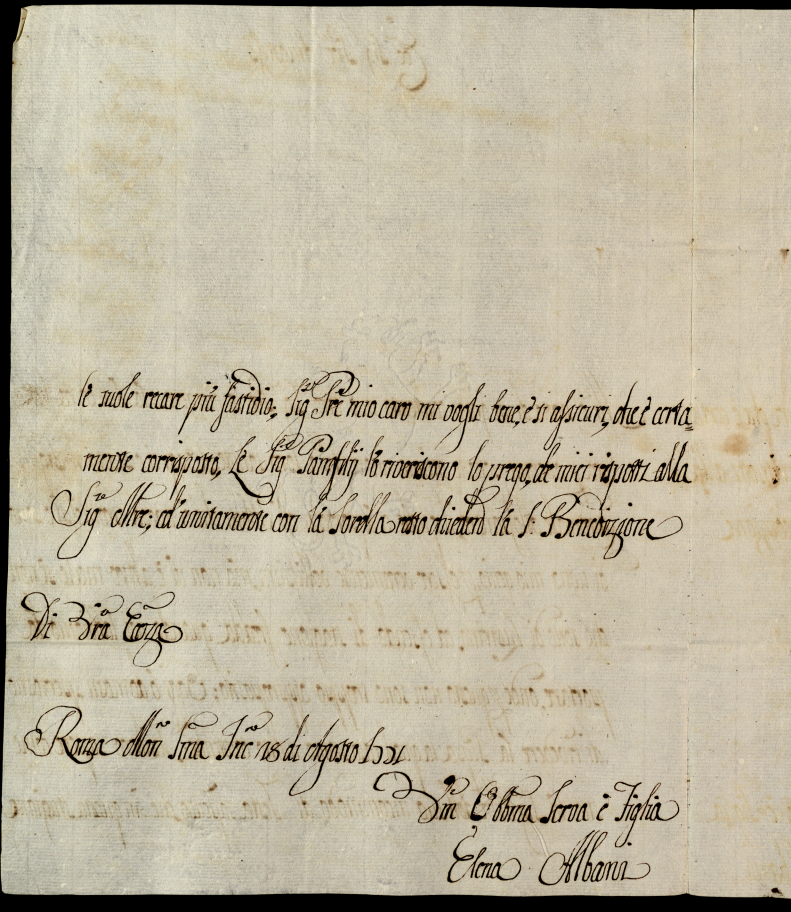 le suole recare più fastidio; Sig.r P͂re mio caro mi vogli bene, e si assicuri, che è certa=
mente corrisposto, Le Sig.re Panfilij lo riveriscono lo prego, de miei rispetti alla
Sig.ra M͂re; ed unitamente con la Sorella resto chiedend la S. Benedizione
Di V͂ra Ecc͂za
Roma Mon S͂ma In͂c 18 di Agosto
Obb͂ma Serva è Figlia
Elena Albani